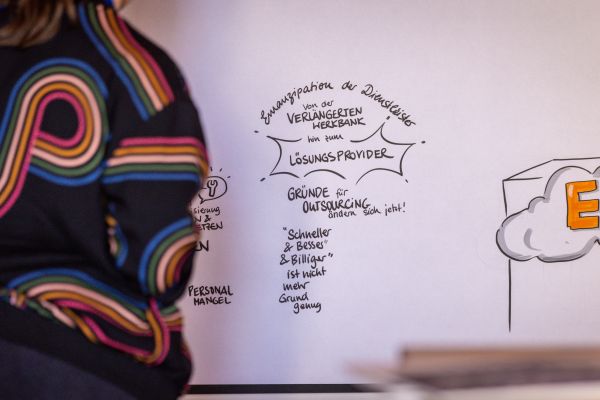 PERSONAL
MANGEL
Emanzipation der Dienstleister
von der
VERLÄNGERTEN
WERKBANK
hin zum
LÖSUNGSPROVIDER
GRÜNDE für
OUTSOURCING
ändern sich jetzt!
"Schneller
& Besser
& Billiger"
ist nicht
mehr
Grund
genug
E